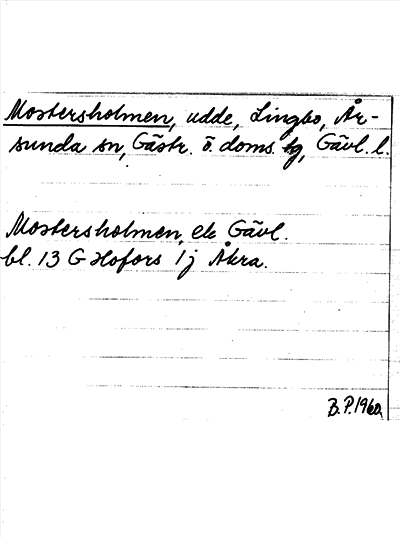 Mostersholmen, udde, Lingbo, År-
sunda sn, Gästr. ö. doms. tg, Gävl. l.
Mostersholmen, ek Gävl.
bl. 13 G Hofors 1 j Åkra.
B.P. 1960.